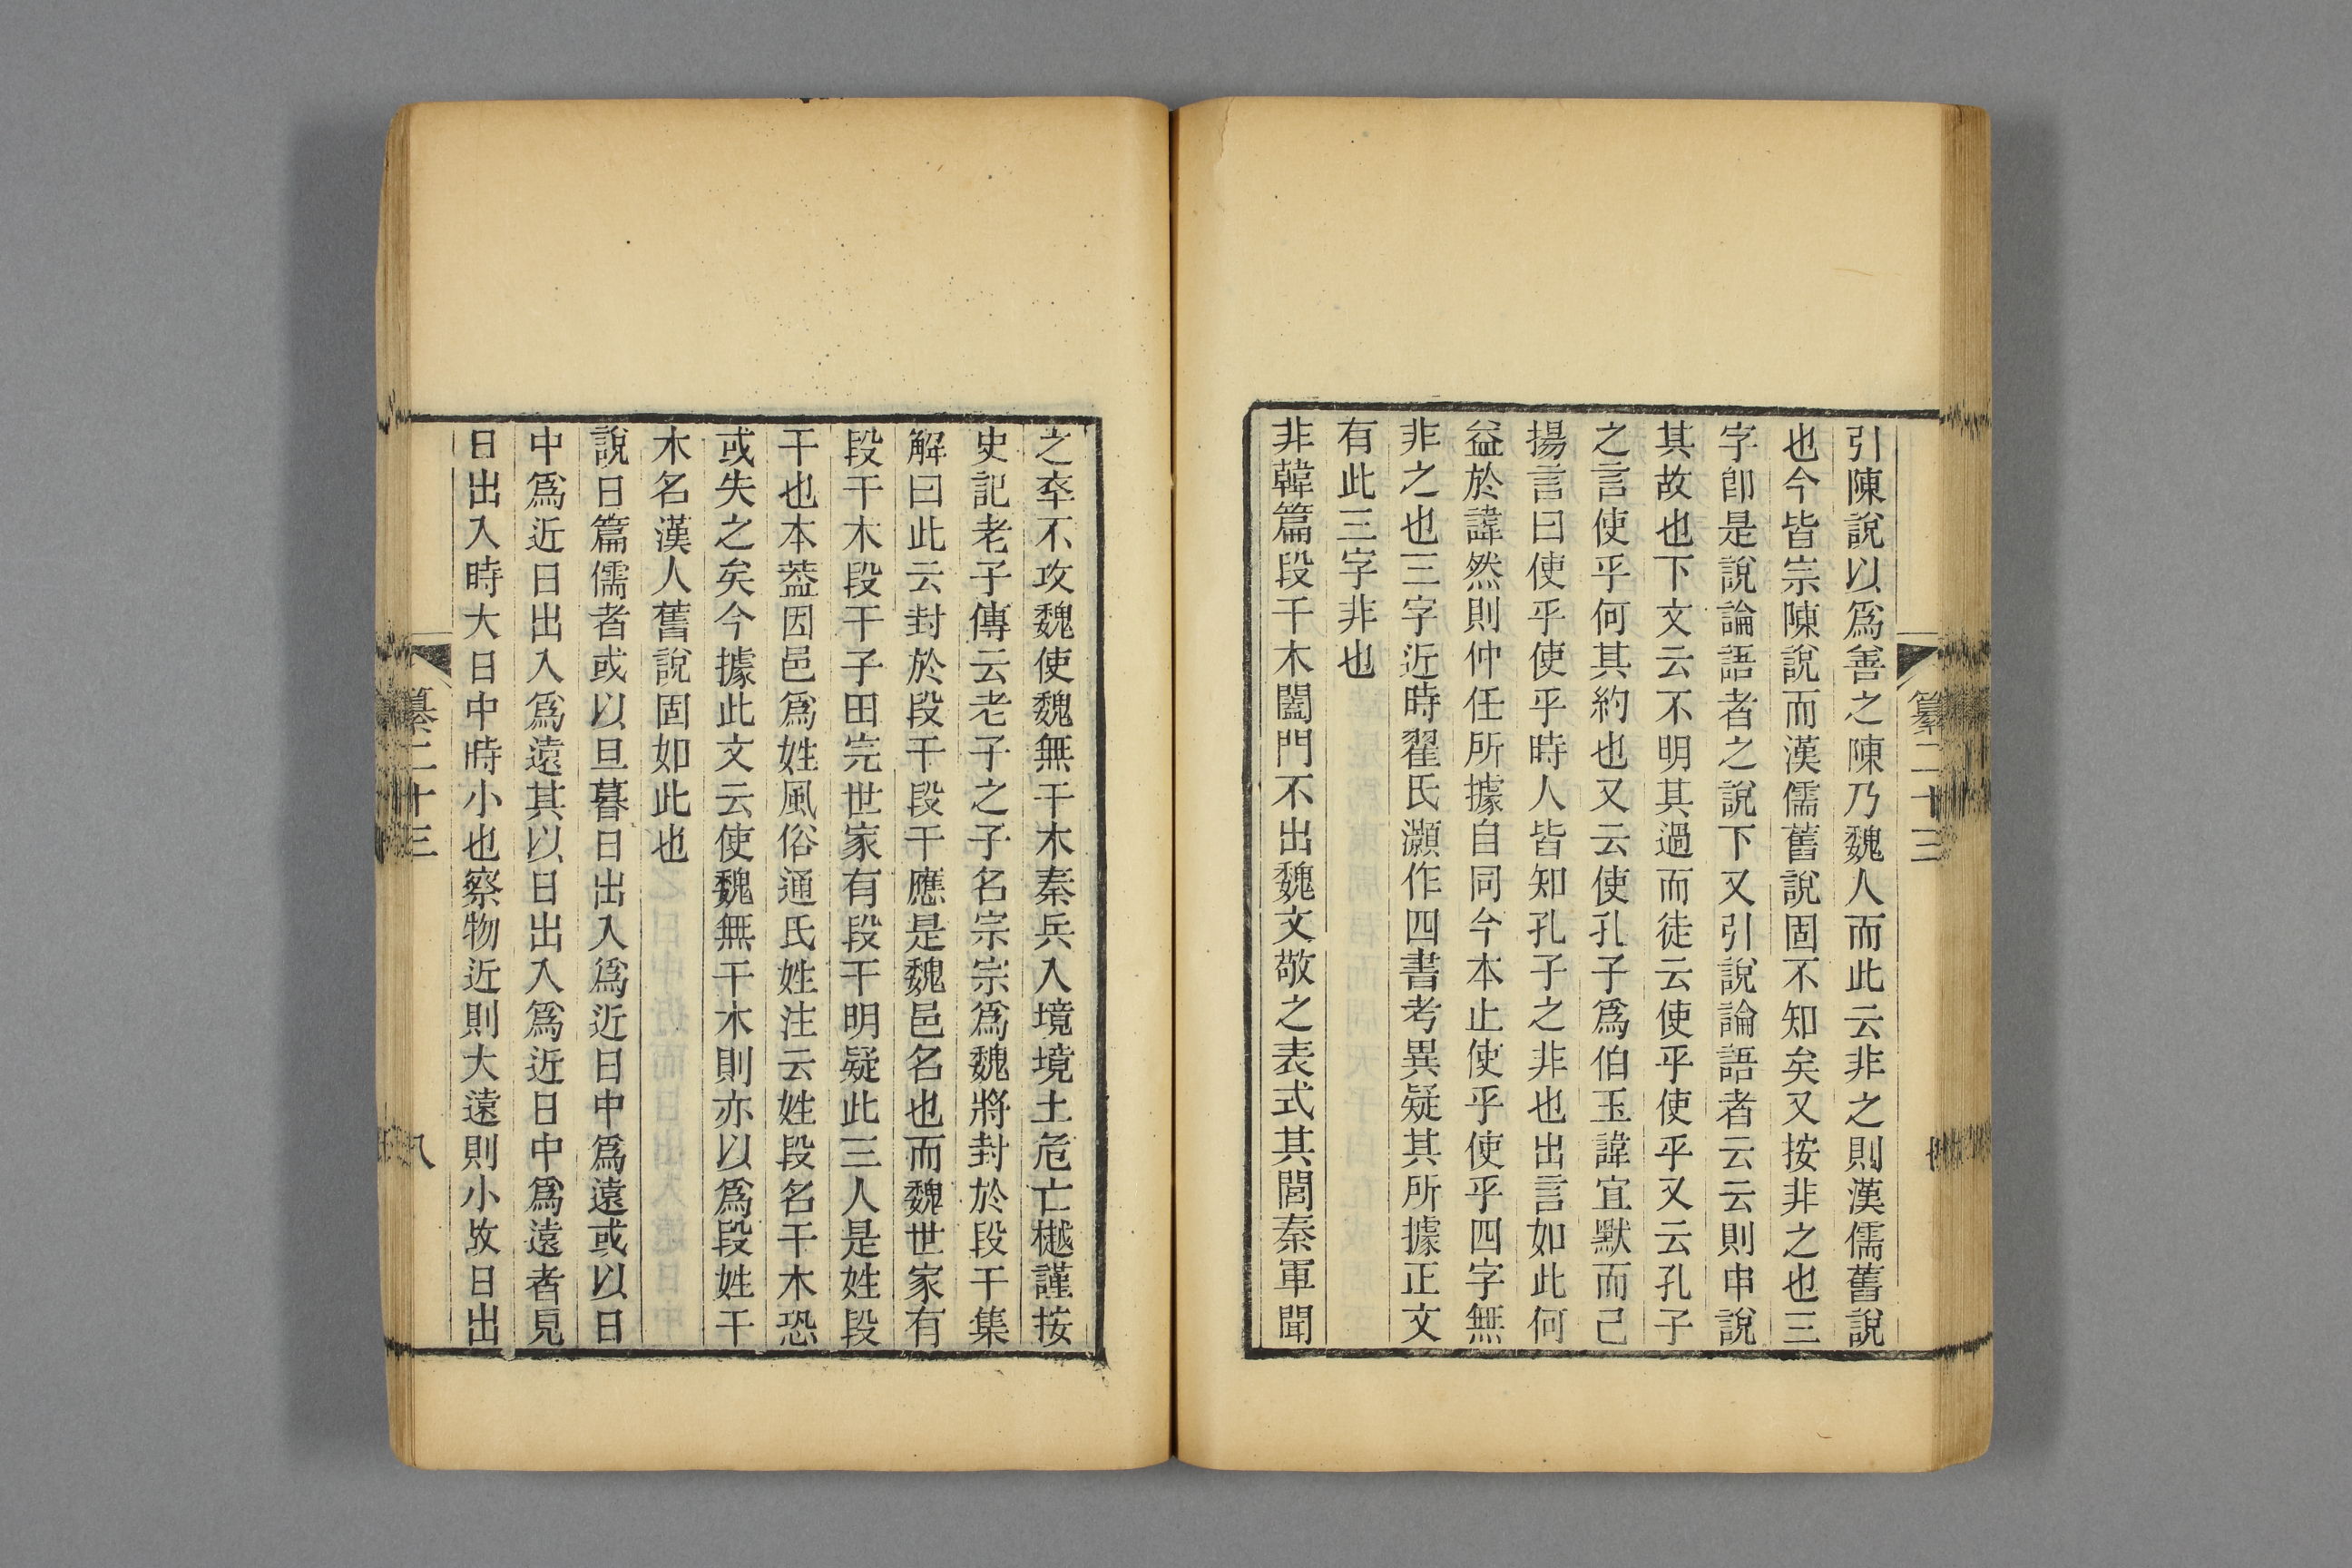 引陳說以爲善之陳乃魏人而此云非之則漢儒舊說
也今皆宗陳說而漢儒舊說固不知矣又按非之也三
字卽是說論語者之說下又引說論語者云云則申說
其故也下文云不明其過而徒云使乎使乎又云孔子
之言使乎何其約也又云使孔子爲伯玉諱宜默而己
揚言曰使乎使乎時人皆知孔子之非也出言如此何
益於諱然則仲任所據自同今本止使乎使乎四字無
非之也三字近時翟氏灝作四書考異疑其所據正文
有此三字非也
非韓篇段干木闔門不出魏文敬之表式其閭秦軍聞
之卒不攻魏使魏無干木秦兵入境境土危亡樾謹按
史記老子傳云老子之子名宗宗爲魏將封於段干集
解曰此云封於段干段干應是魏邑名也而魏世家有
段干木段干子田完世家有段干明疑此三人是姓段
干也本葢因邑爲姓風俗通氏姓注云姓段名干木恐
或失之矣今據此文云使魏無干木則亦以爲段姓干
木名漢人舊說固如此也
說日篇儒者或以旦暮日出入爲近日中爲遠或以日
中爲近日出入爲遠其以日出入爲近日中爲遠者見
日出入時大日中時小也察物近則大遠則小故日出
纂二十三
八